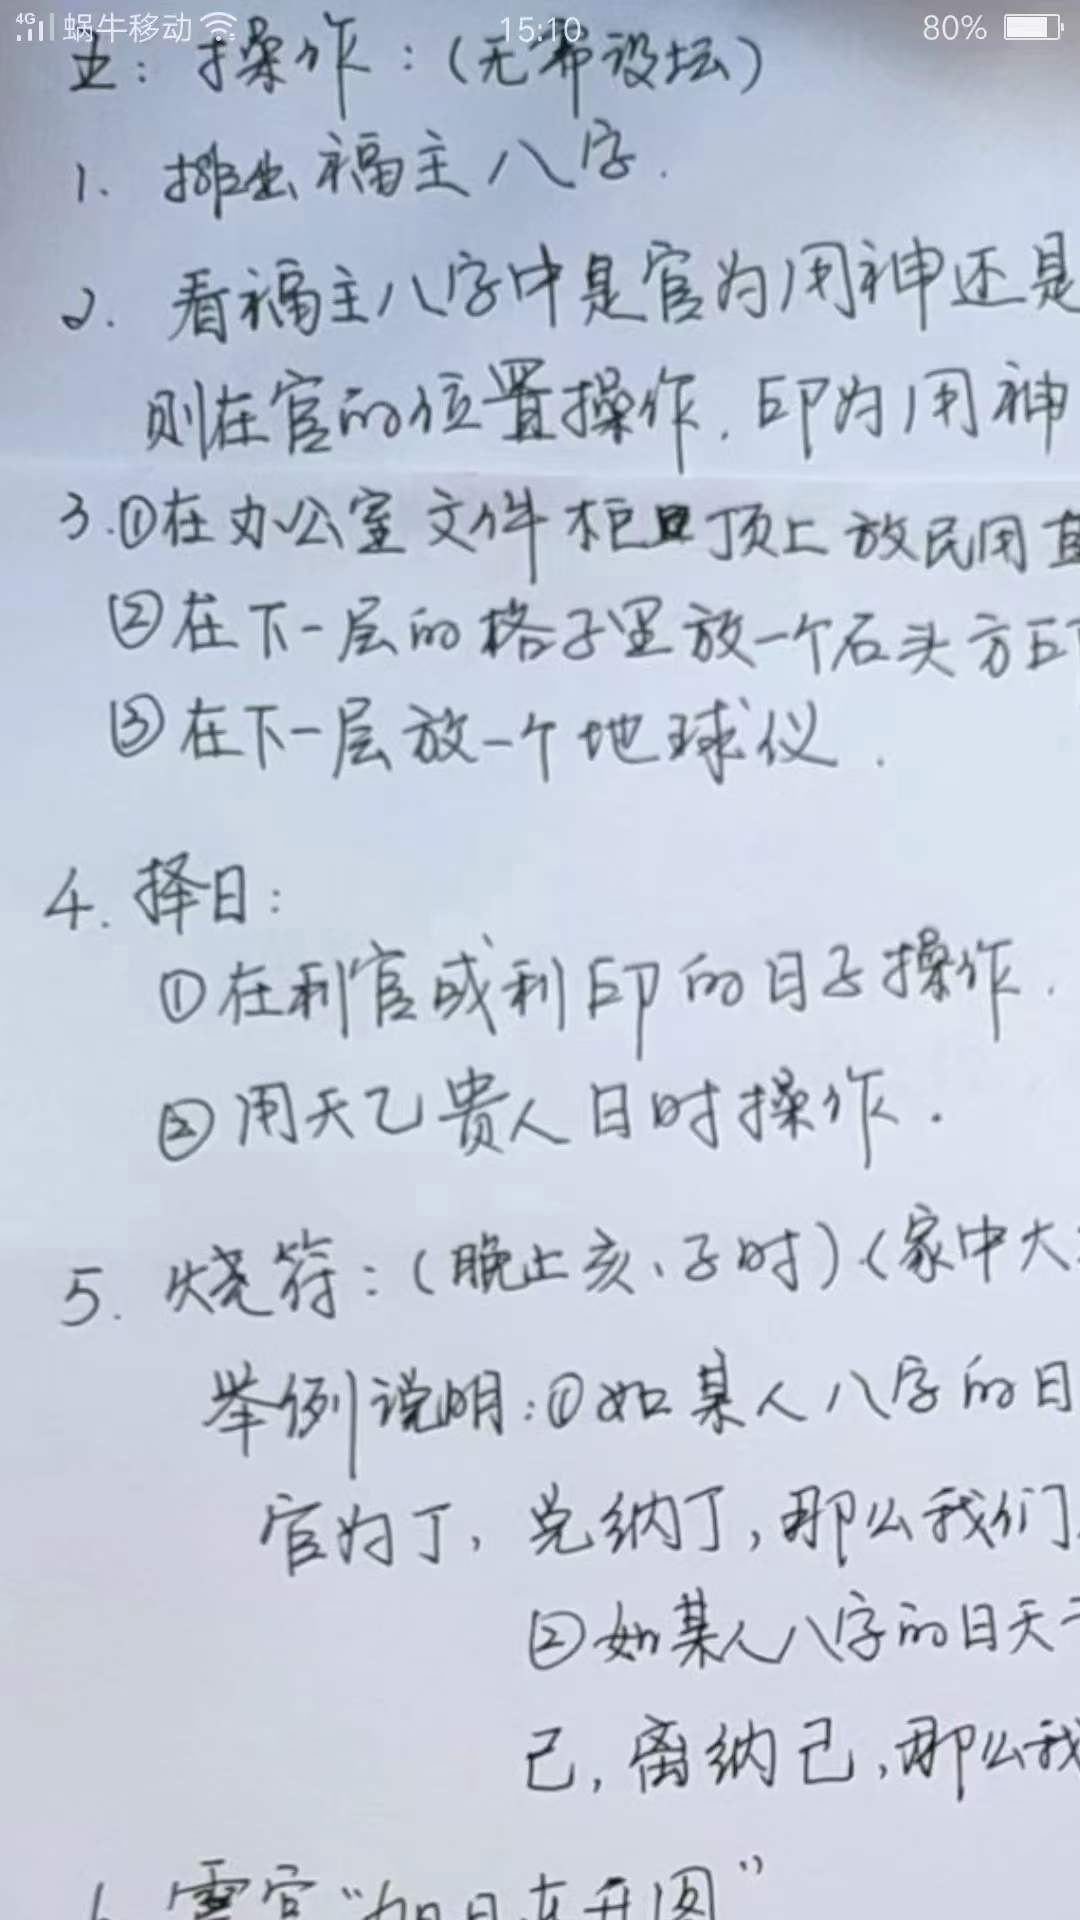 4G 蜗牛移动 15:10 80%
五：操作：（无需设坛）
1. 排出福主八字.
2. 看福主八字中是官为用神还是
则在官的位置操作. 印为用神
3.①在办公室文件柜顶上放民用直
②在下一层的格子里放一个石头方印
③在下一层放一个地球仪.
4. 择日：
①在利官或利印的日子操作.
②用天乙贵人日时操作.
5. 烧符：（晚上亥、子时）（家中大
举例说明：①如某人八字的日
官为丁，兑纳丁，那么我们
②如某人八字的日天干
己，离纳己，那么我